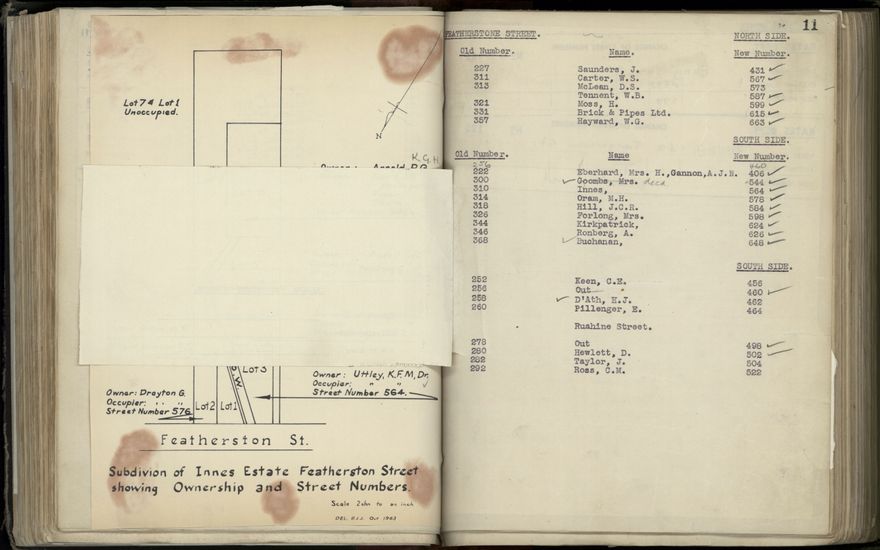 Lot 7 & Lot 1
Unoccupied.
N
K.G.H.
Owner: Arnold, P.G.
Lot 3
Owner: Uttley, K.F.M, Dr,
Occupier: " "
Street Number 564.
Owner: Drayton G.
Occupier: " "
Street Number 576
Lot 2 Lot 1
Featherston St.
Subdivion of Innes Estate Featherston Street
showing Ownership and Street Numbers.
Scale 2chn to an inch
Oct 1963
11
FEATHERSTONE STREET. NORTH SIDE.
Old Number. Name. New Number.
227 Saunders, J. 431
311 Carter, W.S. 567
313 McLean, D.S. 573
Tennent, W.B. 587
321 Moss, H. 599
331 Brick & Pipes Ltd. 615
357 Hayward, W.G. 663
SOUTH SIDE.
Old Number. Name New Number.
222 Eberhard, Mrs. H.,Gannon,A.J.N. 406
300 Coombs, Mrs. decd 544
310 Innes, 564
314 Oram, M.H. 578
318 Hill, J.C.R. 584
326 Forlong, Mrs. 598
344 Kirkpatrick, 624
346 Ronberg, A. 626
368 Buchanan, 648
SOUTH SIDE.
252 Keen, C.E. 456
256 Out 460
258 D'Ath, H.J. 462
260 Pillenger, E. 464
Ruahine Street.
278 Out 498
280 Hewlett, D. 502
282 Taylor, J. 504
292 Ross, C.M. 522